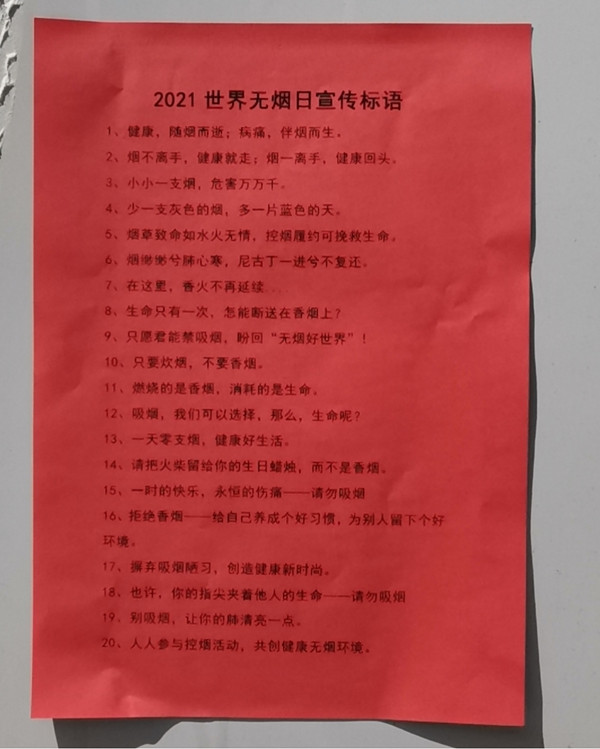 2021 世界无烟日宣传标语
1、健康，随烟而逝；病痛，伴烟而生。
2、烟不离手，健康就走；烟一离手，健康回头。
3、小小一支烟，危害万万千。
4、少一支灰色的烟，多一片蓝色的天。
5、烟草致命如水火无情，控烟履约可挽救生命。
6、烟缈缈兮肺心寒，尼古丁一进兮不复还。
7、在这里，香火不再延续....
8、生命只有一次，怎能断送在香烟上？
9、只愿君能禁吸烟，盼回“无烟好世界”！
10、只要炊烟，不要香烟。
11、燃烧的是香烟，消耗的是生命。
12、吸烟，我们可以选择，那么，生命呢？
13、一天零支烟，健康好生活。
14、请把火柴留给你的生日蜡烛，而不是香烟。
15、一时的快乐，永恒的伤痛——请勿吸烟
16、拒绝香烟——给自己养成个好习惯，为别人留下个好
环境。
17、摒弃吸烟陋习，创造健康新时尚。
18、也许，你的指尖夹着他人的生命——请勿吸烟
19、别吸烟，让你的肺清亮一点。
20、人人参与控烟活动，共创健康无烟环境。